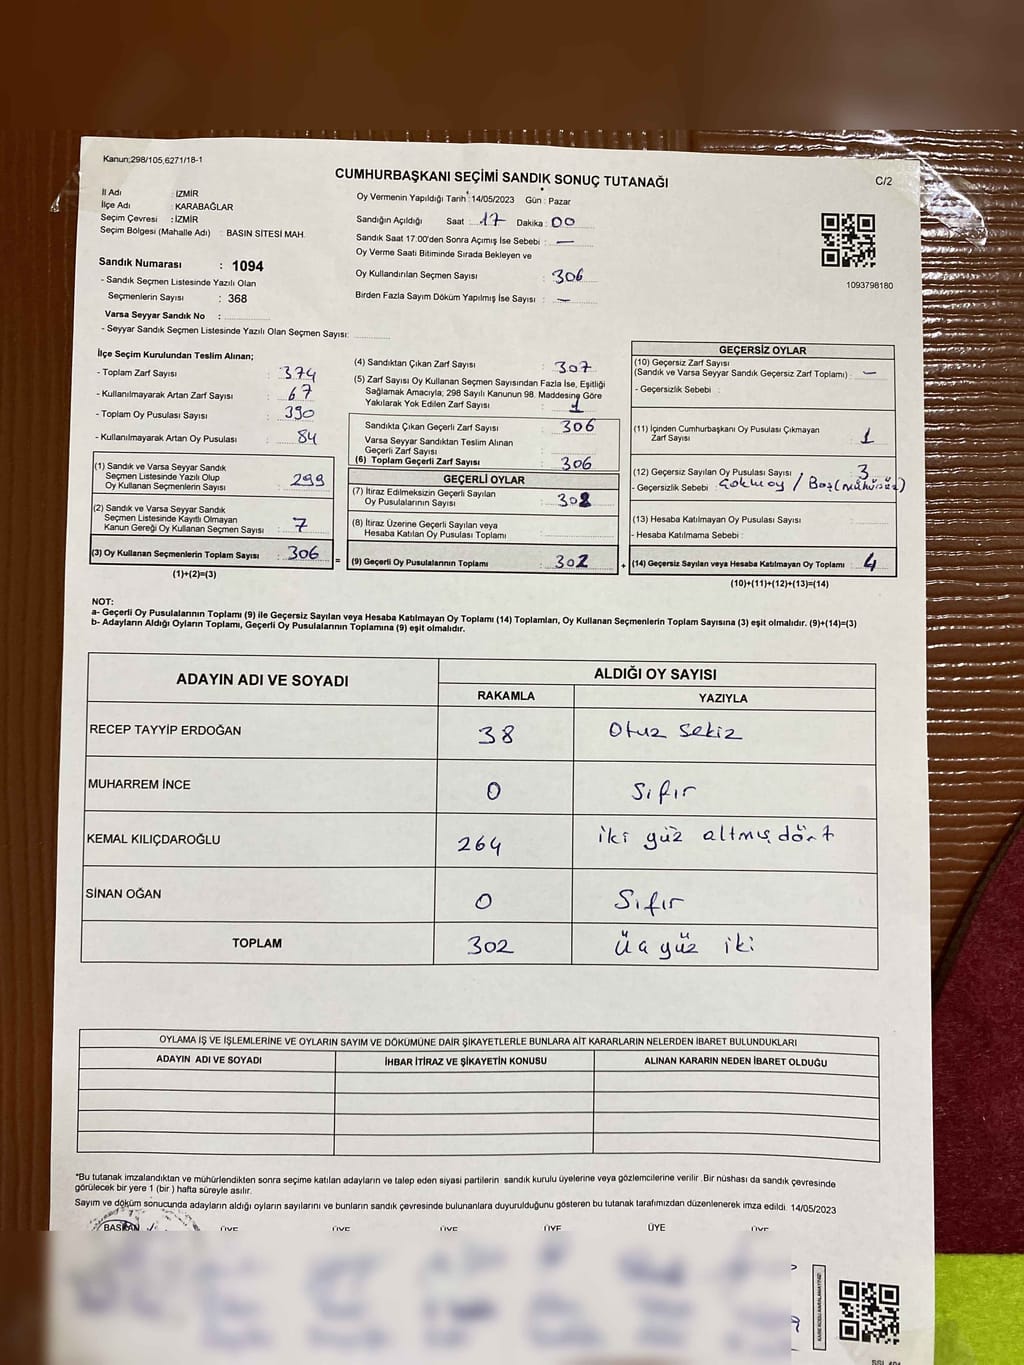 Kanun;298/105,6271/18-1
CUMHURBAŞKANI SEÇİMİ SANDIK SONUÇ TUTANAĞI
C/2
İl Adı : İZMİR
İlçe Adı : KARABAĞLAR
Seçim Çevresi : İZMİR
Seçim Bölgesi (Mahalle Adı) : BASIN SİTESİ MAH.
Sandık Numarası : 1094
- Sandık Seçmen Listesinde Yazılı Olan
Seçmenlerin Sayısı : 368
Varsa Seyyar Sandık No :
- Seyyar Sandık Seçmen Listesinde Yazılı Olan Seçmen Sayısı:
Oy Vermenin Yapıldığı Tarih : 14/05/2023 Gün : Pazar
Sandığın Açıldığı Saat : 17 Dakika : 00
Sandık Saat 17:00'den Sonra Açımış İse Sebebi : —
Oy Verme Saati Bitiminde Sırada Bekleyen ve
Oy Kullandırılan Seçmen Sayısı : 306
Birden Fazla Sayım Döküm Yapılmış İse Sayısı : —
1093798180
İlçe Seçim Kurulundan Teslim Alınan;
- Toplam Zarf Sayısı : 374
- Kullanılmayarak Artan Zarf Sayısı : 67
- Toplam Oy Pusulası Sayısı : 390
- Kullanılmayarak Artan Oy Pusulası : 84
(1) Sandık ve Varsa Seyyar Sandık
Seçmen Listesinde Yazılı Olup
Oy Kullanan Seçmenlerin Sayısı : 299
(2) Sandık ve Varsa Seyyar Sandık
Seçmen Listesinde Kayıtlı Olmayan
Kanun Gereği Oy Kullanan Seçmen Sayısı : 7
(3) Oy Kullanan Seçmenlerin Toplam Sayısı : 306 =
(1)+(2)=(3)
(4) Sandıktan Çıkan Zarf Sayısı : 307
(5) Zarf Sayısı Oy Kullanan Seçmen Sayısından Fazla İse, Eşitliği
Sağlamak Amacıyla; 298 Sayılı Kanunun 98. Maddesine Göre
Yakılarak Yok Edilen Zarf Sayısı : 1
Sandıkta Çıkan Geçerli Zarf Sayısı : 306
Varsa Seyyar Sandıktan Teslim Alınan
Geçerli Zarf Sayısı :
(6) Toplam Geçerli Zarf Sayısı : 306
GEÇERLİ OYLAR
(7) İtiraz Edilmeksizin Geçerli Sayılan
Oy Pusulalarının Sayısı : 302
(8) İtiraz Üzerine Geçerli Sayılan veya
Hesaba Katılan Oy Pusulası Toplamı :
(9) Geçerli Oy Pusulalarının Toplamı : 302 +
GEÇERSİZ OYLAR
(10) Geçersiz Zarf Sayısı
(Sandık ve Varsa Seyyar Sandık Geçersiz Zarf Toplamı) : —
- Geçersizlik Sebebi :
(11) İçinden Cumhurbaşkanı Oy Pusulası Çıkmayan
Zarf Sayısı : 1
(12) Geçersiz Sayılan Oy Pusulası Sayısı : 3
- Geçersizlik Sebebi : Çoklu oy / Boş (mühürsüz)
(13) Hesaba Katılmayan Oy Pusulası Sayısı :
- Hesaba Katılmama Sebebi :
(14) Geçersiz Sayılan veya Hesaba Katılmayan Oy Toplamı : 4
(10)+(11)+(12)+(13)=(14)
NOT:
a- Geçerli Oy Pusulalarının Toplamı (9) ile Geçersiz Sayılan veya Hesaba Katılmayan Oy Toplamı (14) Toplamları, Oy Kullanan Seçmenlerin Toplam Sayısına (3) eşit olmalıdır. (9)+(14)=(3)
b- Adayların Aldığı Oyların Toplamı, Geçerli Oy Pusulalarının Toplamına (9) eşit olmalıdır.
ADAYIN ADI VE SOYADI
ALDIĞI OY SAYISI
RAKAMLA YAZIYLA
RECEP TAYYİP ERDOĞAN 38 Otuz sekiz
MUHARREM İNCE 0 sıfır
KEMAL KILIÇDAROĞLU 264 iki yüz altmış dört
SİNAN OĞAN 0 Sıfır
TOPLAM 302 Üç yüz iki
OYLAMA İŞ VE İŞLEMLERİNE VE OYLARIN SAYIM VE DÖKÜMÜNE DAİR ŞİKAYETLERLE BUNLARA AİT KARARLARIN NELERDEN İBARET BULUNDUKLARI
ADAYIN ADI VE SOYADI İHBAR İTİRAZ VE ŞİKAYETİN KONUSU ALINAN KARARIN NEDEN İBARET OLDUĞU
*Bu tutanak imzalandıktan ve mühürlendikten sonra seçime katılan adayların ve talep eden siyasi partilerin sandık kurulu üyelerine veya gözlemcilerine verilir. Bir nüshası da sandık çevresinde
görülecek bir yere 1 (bir ) hafta süreyle asılır.
Sayım ve döküm sonucunda adayların aldığı oyların sayılarını ve bunların sandık çevresinde bulunanlara duyurulduğunu gösteren bu tutanak tarafımızdan düzenlenerek imza edildi. 14/05/2023
BAŞKAN ÜYE ÜYE ÜYE ÜYE ÜYE ÜYE